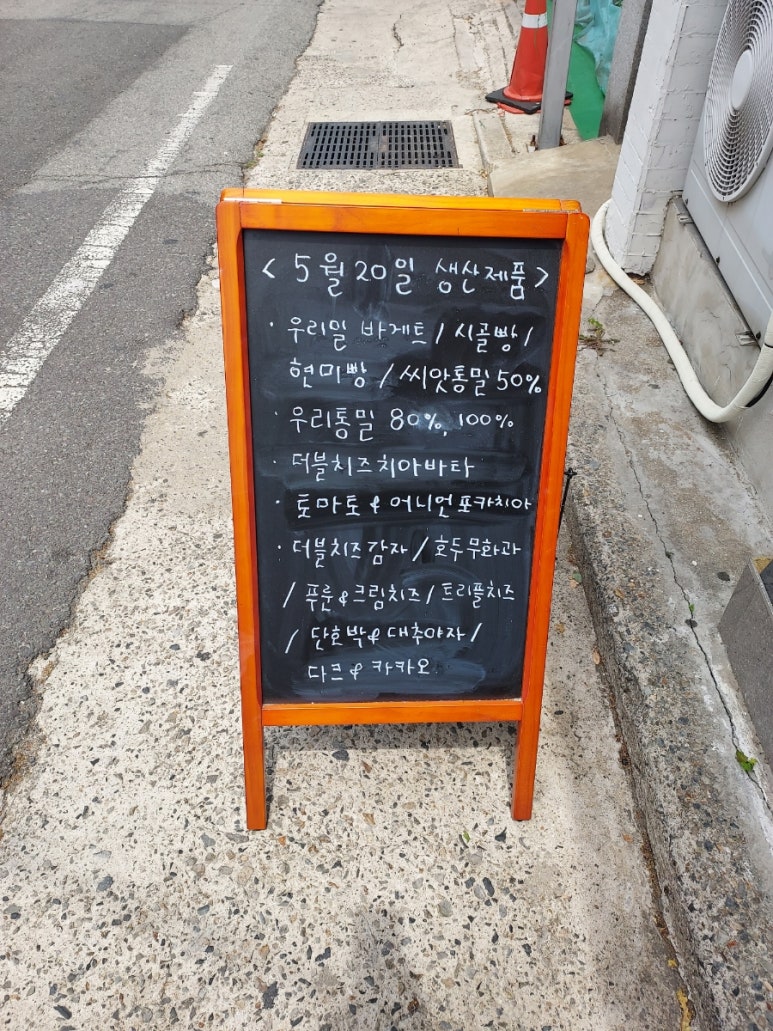 < 5월 20일 생산제품 >
· 우리밀 바게트 / 시골빵 /
현미빵 / 씨앗통밀 50%
· 우리통밀 80%, 100%
· 더블치즈치아바타
· 토마토 & 어니언포카치아
· 더블치즈감자 / 호두무화과
/ 푸룬 & 크림치즈 / 트리플치즈
/ 단호박 & 대추야자 /
다크 & 카카오